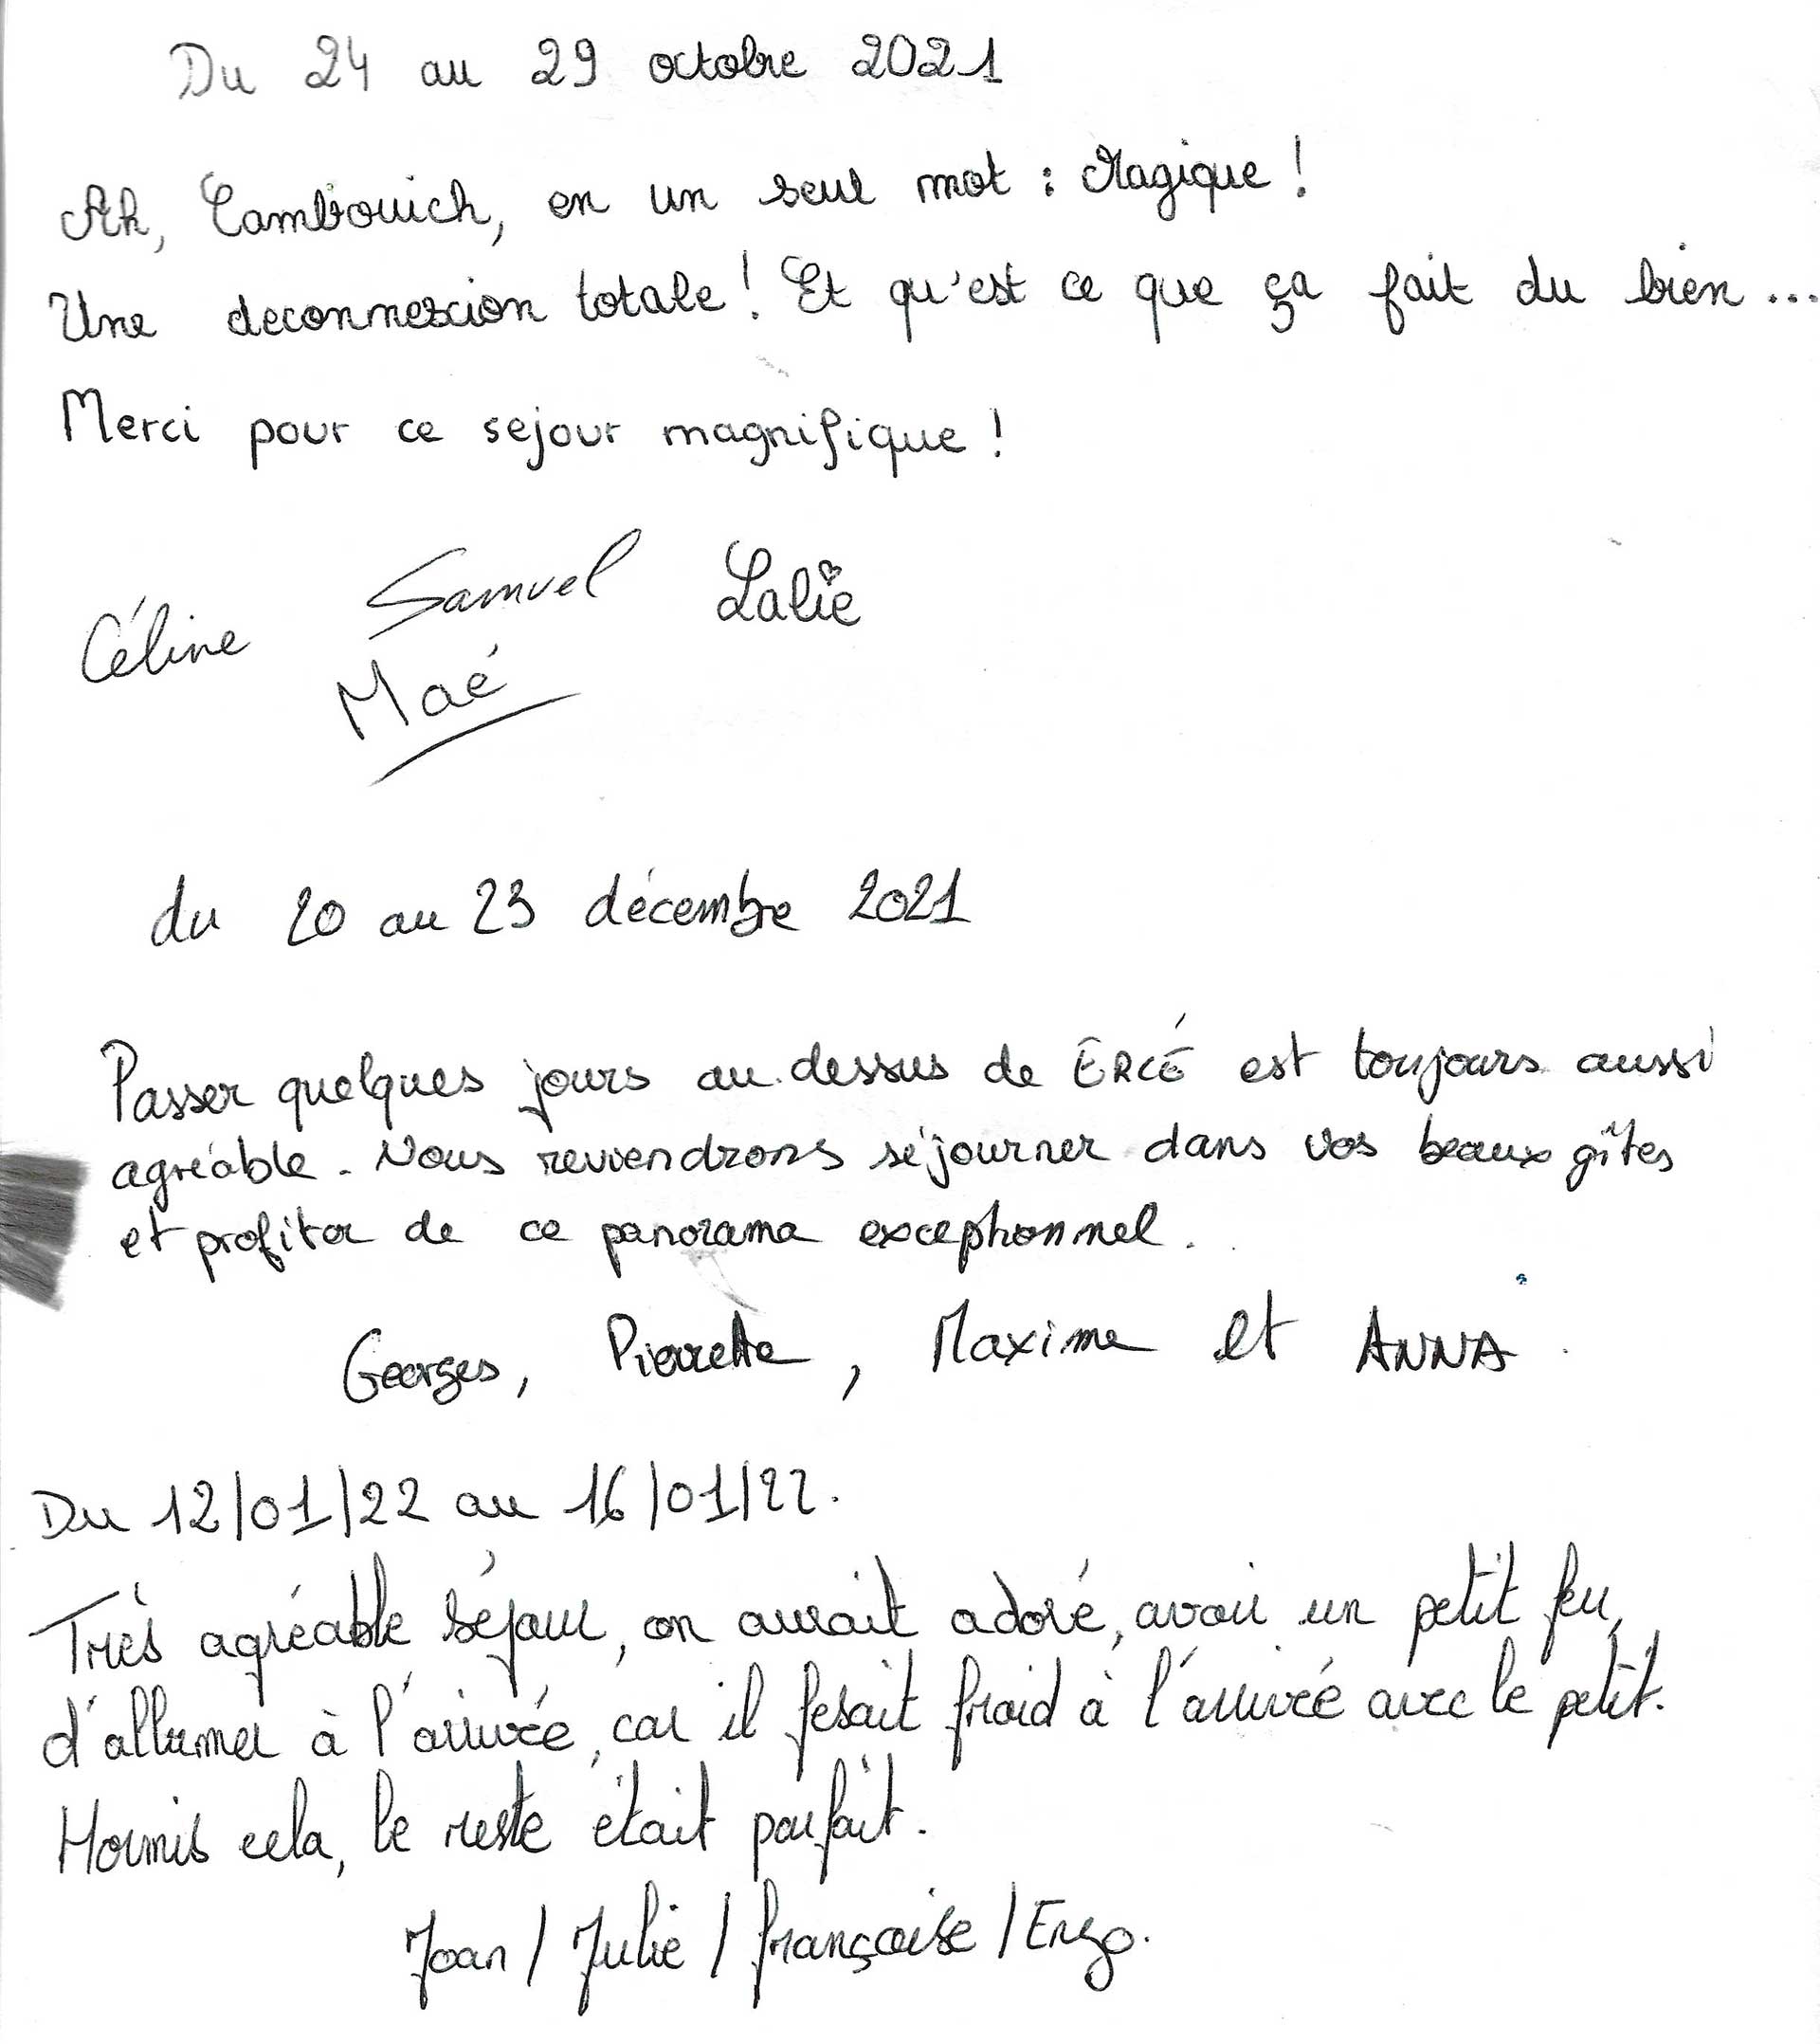 Du 24 au 29 octobre 2021
Ah, Cambouich, en un seul mot : Magique !
Une deconnexcion totale ! Et qu'est ce que ça fait du bien ...
Merci pour ce sejour magnifique !
Céline Samuel Lalie
Maé
du 20 au 23 décembre 2021
Passer quelques jours au dessus de ERCÉ est toujours aussi
agréable. Nous reviendrons séjourner dans vos beaux gîtes
et profiter de ce panorama exceptionnel.
Georges, Pierrette, Maxime et ANNA.
Du 12/01/22 au 16/01/22.
Très agréable séjour, on aurait adoré, avoir un petit feu,
d'allumer à l'arrivée, car il fesait froid à l'arrivée avec le petit.
Hormis cela, le reste était parfait.
Joan / Julie / françoise / Enzo.